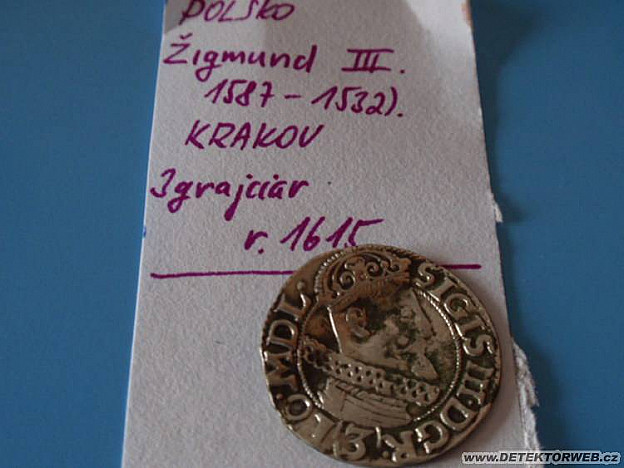 POLSKO
Žigmund III.
1587 – 1532).
KRAKOV
3grajciar
r. 1615
SIGIS III DG R
LO MDL
WWW.DETEKTORWEB.CZ